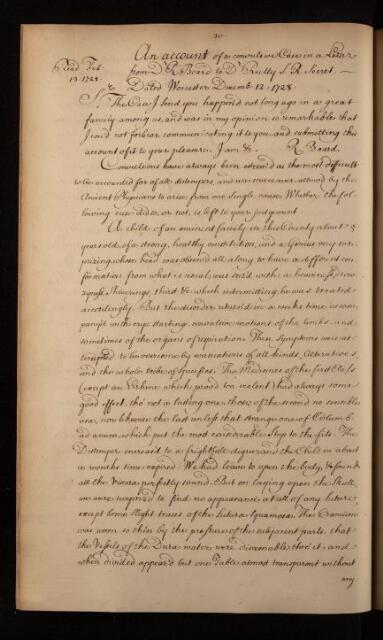 30
An account of a convulsive Case in a Letter
Read Feb. from Dr R. Beard to Dr Rutty S. R. Secret. —
13. 1728. Dated Worcester Decemb. 12. 1728.
Sr. The Case I send you happen'd not long ago in a great
family among us, and was in my opinion so remarkable that
I cou'd not forbear communicating it to you and submitting this
account of it to your pleasure. I am &c. R Beard.
Convulsions have always been esteem'd as the most difficult
to be accounted for of all distempers, and were allow'd by the
Ancient Physicians to arise from one single cause. Whether the fol-
lowing case did so, or not, is left to your judgment.
A child of an eminent family in this County about 3
years old, of a strong, healthy constitution, and a Genius very sur-
prizing, whose head was observ'd all along to have a different con-
formation from what is usual, was seiz'd with a heaviness, drow-
zyness, shiverings, thirst &c. which intermitting, he was treated
accordingly. But the disorder return'd in a weeks time, accom-
pany'd with crys, starting, convulsive motions of the limbs, and
sometimes of the organs of respiration. These symptoms were at-
tempted to be overcome by evacuations of all kinds, Alteratives,
and the whole tribe of Specifics. The Medicines of the first Class
(except an Errhine which prov'd too violent) had always some
good effect, tho' not a lasting one: those of the second no sensible
one, nor likewise the last unless that strange one of Columb.
ad which put the most considerable stop to the fits. The
Distemper encreas'd to a frightful degree, and the Child in about
months time expired. We had leave to open the body, & found
all the Viscera perfectly sound. But on laying open the Skull,
we were surprized to find no appearance at all of any Suture,
except some slight traces of the Sutura Squamosa. The Cranium
was worn so thin by the pressure of the subjacent parts, that
the Vessels of the Dura mater were discernable thro' it, and
when divided appear'd but one Table almost transparent without
any